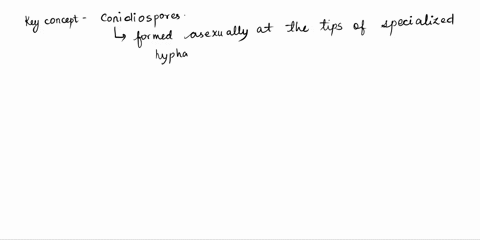 Key concept - Conidiospores.
↳ formed asexually at the tips of specialized
hypha